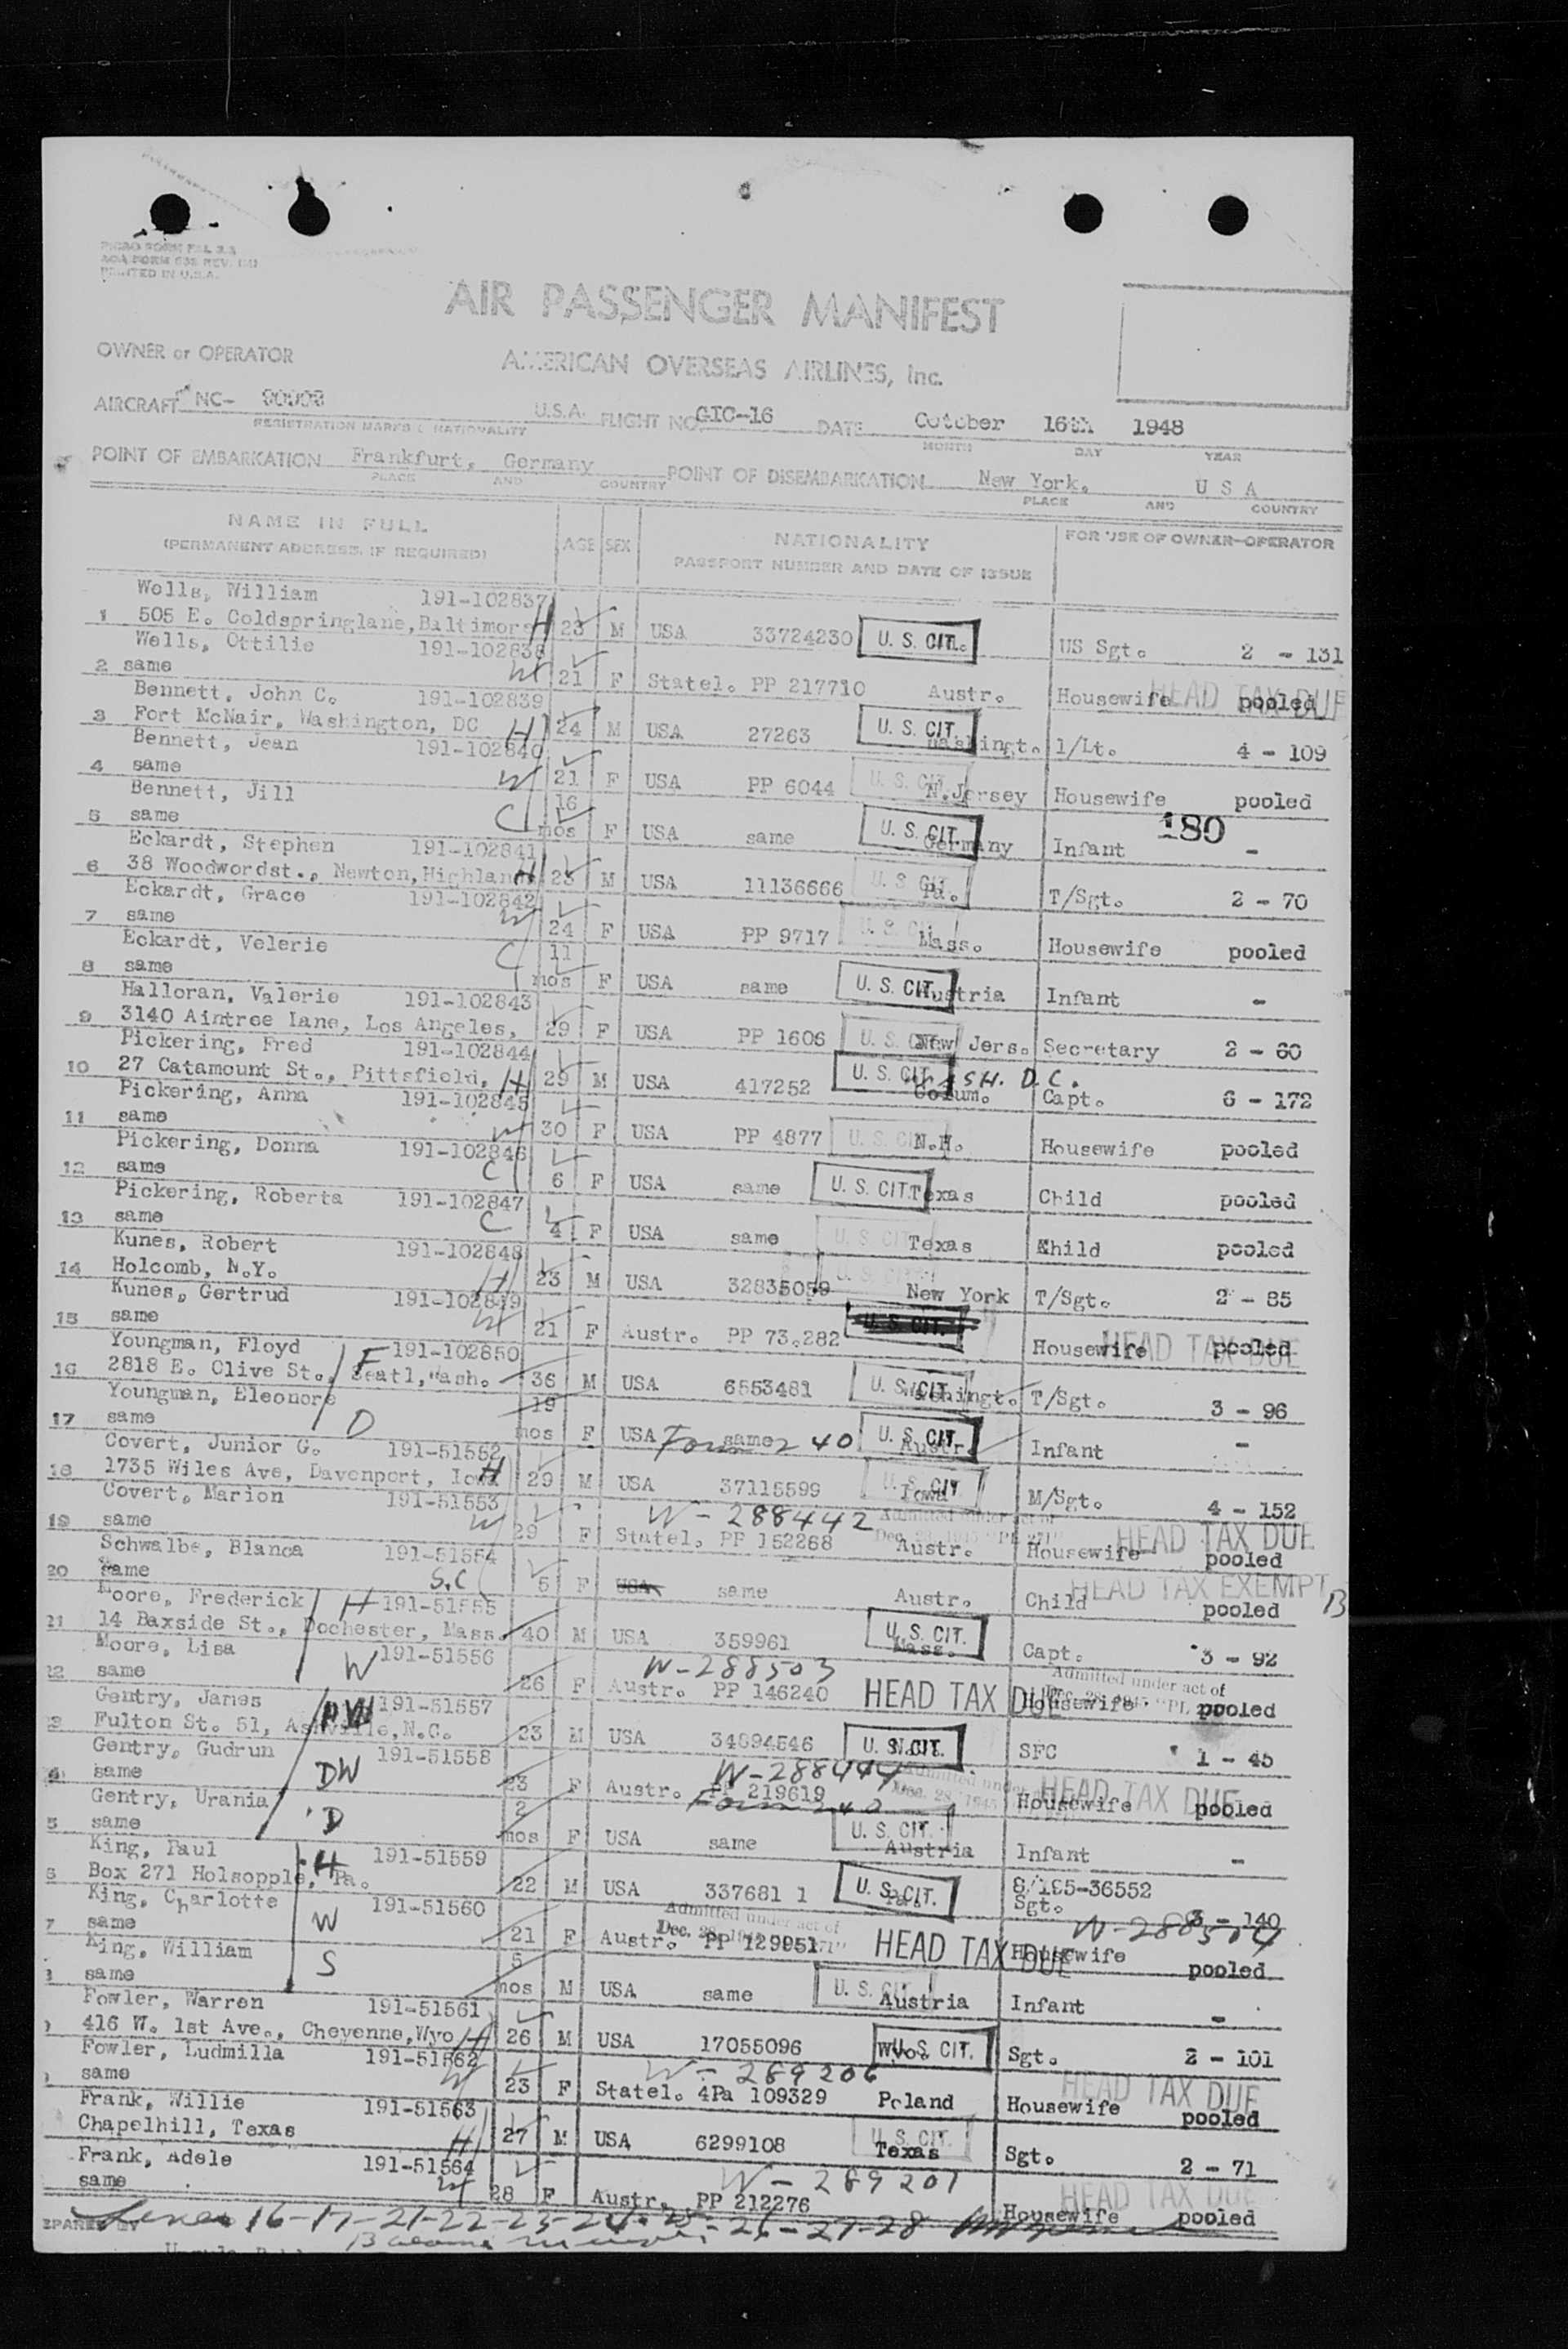 PRINTED IN U.S.A.
AIR PASSENGER MANIFEST
OWNER or OPERATOR AMERICAN OVERSEAS AIRLINES, Inc.
AIRCRAFT NC- U.S.A. FLIGHT NO. GIC-16 DATE October 16th 1948
REGISTRATION MARKS & NATIONALITY MONTH DAY YEAR
POINT OF EMBARKATION Frankfurt, Germany POINT OF DISEMBARKATION New York. U S A
PLACE AND COUNTRY PLACE AND COUNTRY
NAME IN FULL AGE SEX NATIONALITY FOR USE OF OWNER-OPERATOR
(PERMANENT ADDRESS, IF REQUIRED) PASSPORT NUMBER AND DATE OF ISSUE
Wells, William 191-102837
1 505 E. Coldspringlane, Baltimore H 23 M USA 33724230 U. S. CIT. US Sgt. 2 - 131
Wells, Ottilie 191-102838
2 same W 21 F Statel. PP 217710 Austr. Housewife pooled HEAD TAX DUE
Bennett, John C. 191-102839
3 Fort McNair, Washington, DC H 24 M USA 27263 U. S. CIT. Washingt. 1/Lt. 4 - 109
Bennett, Jean 191-102840
4 same W 21 F USA PP 6044 U. S. CIT. N.Jersey Housewife pooled
Bennett, Jill 16 180
5 same C mos F USA same U. S. CIT. Germany Infant -
Eckardt, Stephen 191-102841
6 38 Woodwordst., Newton, Highland H 23 M USA 11136666 U. S. CIT. Pa. T/Sgt. 2 - 70
Eckardt, Grace 191-102842
7 same W 24 F USA PP 9717 U. S. CIT. Mass. Housewife pooled
Eckardt, Velerie 11
8 same C mos F USA same U. S. CIT. Austria Infant -
Halloran, Valerie 191-102843
9 3140 Aintree Lane, Los Angeles, 29 F USA PP 1606 U. S. CIT. New Jers. Secretary 2 - 60
Pickering, Fred 191-102844
10 27 Catamount St., Pittsfield, H 29 M USA 417252 U. S. CIT. WASH. D.C. Colum. Capt. 6 - 172
Pickering, Anna 191-102845
11 same W 30 F USA PP 4877 U. S. CIT. N.H. Housewife pooled
Pickering, Donna 191-102846
12 same C 6 F USA same U. S. CIT. Texas Child pooled
Pickering, Roberta 191-102847
13 same C 4 F USA same U. S. CIT. Texas Child pooled
Kunes, Robert 191-102848
14 Holcomb, N.Y. H 23 M USA 32835059 U. S. CIT. New York T/Sgt. 2 - 85
Kunes, Gertrud 191-102849
15 same W 21 F Austr. PP 73.282 U. S. CIT. Housewife pooled HEAD TAX DUE
Youngman, Floyd F 191-102850
16 2818 E. Olive St., Seatl, Wash. 36 M USA 6553481 U. S. CIT. Washingt. T/Sgt. 3 - 96
Youngman, Eleonore 19
17 same D mos F USA same Form 240 U. S. CIT. Austr. Infant -
Covert, Junior G. 191-51552
18 1735 Wiles Ave, Davenport, Iowa H 29 M USA 37115599 U. S. CIT. Iowa M/Sgt. 4 - 152
Covert, Marion 191-51553 W-288442 Admitted under act of
19 same W 29 F Statel. PP 152268 Dec. 28, 1945 "PL 271" Austr. Housewife pooled HEAD TAX DUE
Schwalbe, Blanca 191-51554
20 same S.C 5 F USA same Austr. Child pooled HEAD TAX EXEMPT B
Moore, Frederick H 191-51555
21 14 Baxside St., Dochester, Mass. 40 M USA 359961 U. S. CIT. Mass. Capt. 3 - 92
Moore, Lisa W 191-51556 W-288503 Admitted under act of
22 same 26 F Austr. PP 146240 HEAD TAX DUE Housewife pooled
Gentry, James 191-51557
Fulton St. 51, Ashville, N.C. 23 M USA 34694546 U. S. CIT. N.C. SFC 1 - 45
Gentry, Gudrun DW 191-51558 W-288444 Admitted under
same 23 F Austr. PP 219619 Dec. 28, 1945 Housewife pooled HEAD TAX DUE
Gentry, Urania D 2 Form 240
same mos F USA same U. S. CIT. Austria Infant -
King, Paul H 191-51559
Box 271 Holsopple, Pa. 22 M USA 337681 1 U. S. CIT. Pa. 8/195-36552 Sgt. 3 - 140
King, Charlotte W 191-51560 Admitted under act of W-288504
same 21 F Austr. PP 129951 HEAD TAX DUE Housewife pooled
King, William S 5
same mos M USA same U. S. CIT. Austria Infant -
Fowler, Warren 191-51561
416 W. 1st Ave., Cheyenne, Wyo H 26 M USA 17055096 Wyo. U. S. CIT. Sgt. 2 - 101
Fowler, Ludmilla 191-51562 W-289206
same W 23 F Statel. 4Pa 109329 Poland Housewife pooled HEAD TAX DUE
Frank, Willie 191-51563
Chapelhill, Texas H 27 M USA 6299108 U. S. CIT. Texas Sgt. 2 - 71
Frank, Adele 191-51564 W-289201
same W 28 F Austr. PP 212276 Housewife pooled HEAD TAX DUE
Lines 16-17-21-22-23-24-25-26-27-28